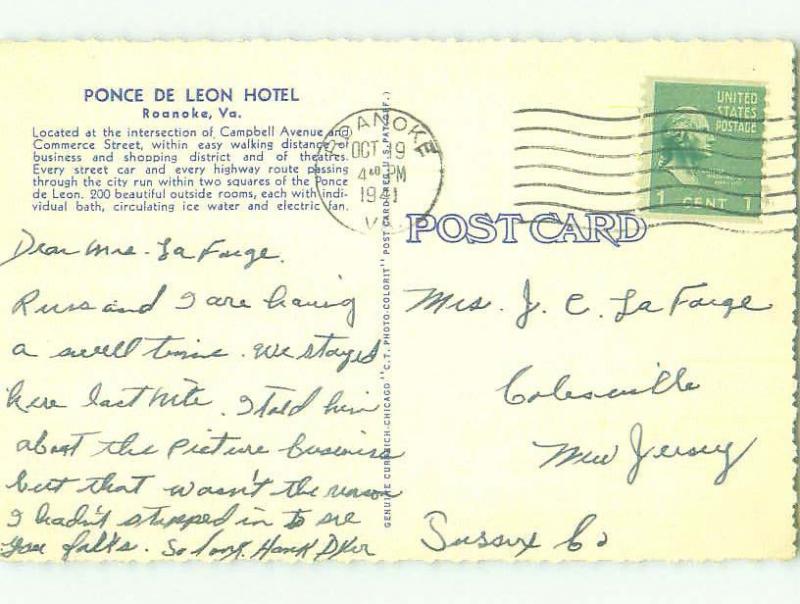 PONCE DE LEON HOTEL
Roanoke, Va.
Located at the intersection of Campbell Avenue and
Commerce Street, within easy walking distance of
business and shopping district and of theatres.
Every street car and every highway route passing
through the city run within two squares of the Ponce
de Leon. 200 beautiful outside rooms, each with indi-
vidual bath, circulating ice water and electric fan.
Dear Mrs. La Farge.
Russ and I are having
a swell time. We stayed
here last Nite. I told him
about the Picture business
but that wasn't the reason
I hadn't stopped in to see
you folks. So long. Hank
GENUINE CURTEICH-CHICAGO "C.T. PHOTO-COLORIT" POST CARD (REG. U.S. PAT. OFF.)
ROANOKE
OCT 19
4 40 PM
1941
VA.
UNITED
STATES
POSTAGE
1 CENT 1
POST CARD
Mrs. J. C. La Farge
Colesville
New Jersey
Sussex Co